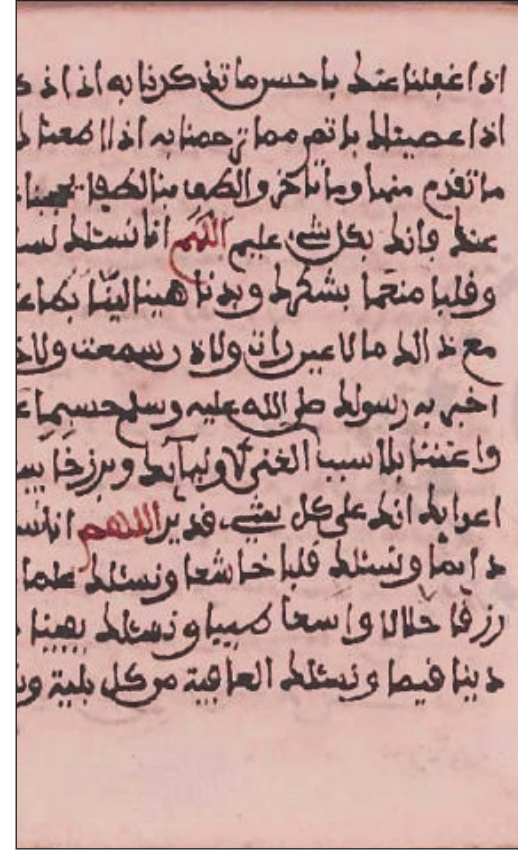 اذا غفلنا عنك باحسن ما تذكرنا به اذا ذ
اذا عصيناك باتم مما ترحمنا به اذا اطعنا
ما تقدم منها وما تاخر والطف بنا لطفا يحجبنا
عنك فانك بكل شيء عليم اللهم انا نسئلك لسا
وقلبا منعما بشكرك وبدنا هينا لينا بطاعـ
مع ذالك ما لا عين رات ولا اذن سمعت ولا خـ
اخبر به رسولك صل الله عليه وسلم حسبما عـ
واغننا بلا سبب
اعدايك انك على كل شيء قدير اللهم انا نسـ
دايما ونسئلك قلبا خاشعا ونسئلك علما
رزقا حلالا واسعا طيبا ونسئلك يقينا
دينا قيما ونسئلك العافية من كل بلية ونـ